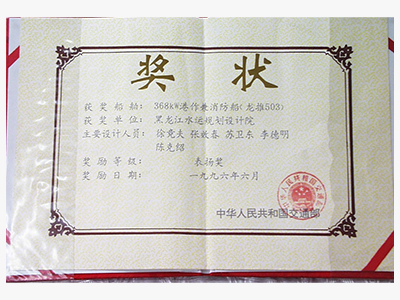 奖状
获奖船舶: 368kW港作兼消防船(龙推503)
获奖单位: 黑龙江水运规划设计院
主要设计人员: 徐竞夫 张敏春 苏卫东 李德明
陈克绍
奖励等级: 表扬奖
奖励日期: 一九九六年六月
中华人民共和国交通部